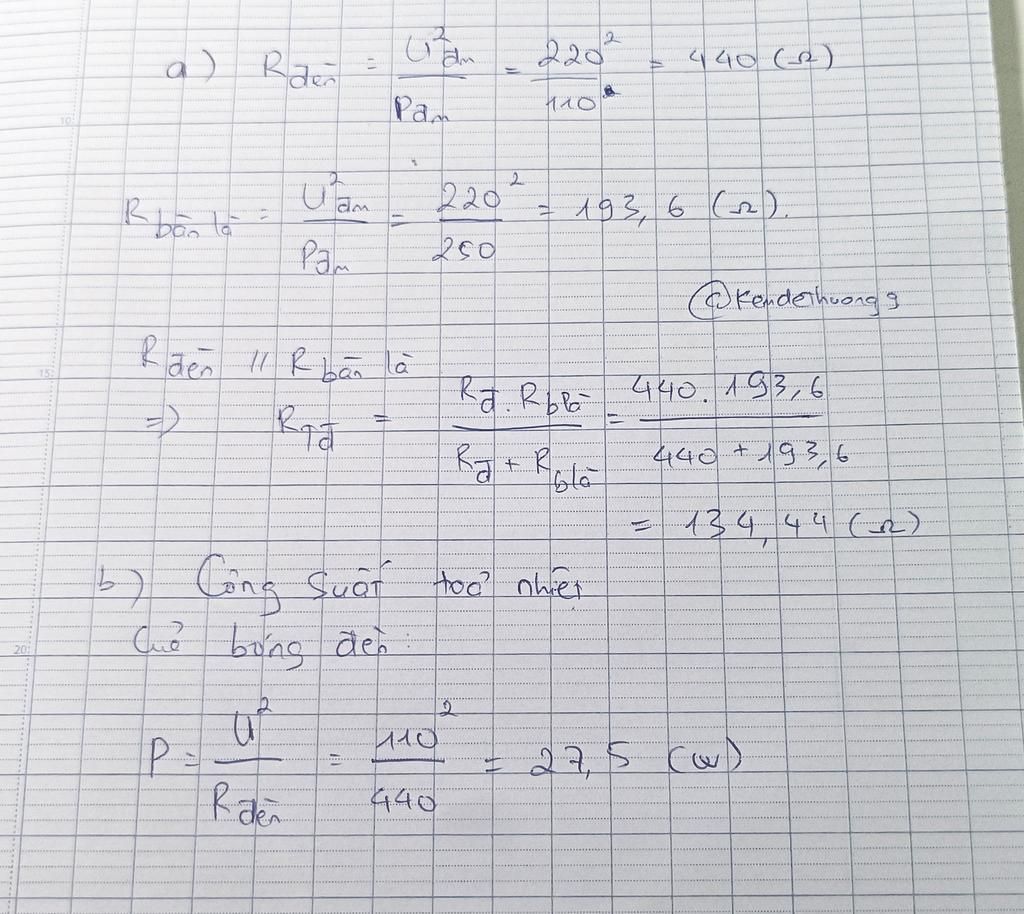 a) Rđèn = U²đm / Pđm = 220² / 110 = 440 (Ω)
Rbàn là = U²đm / Pđm = 220² / 250 = 193,6 (Ω).
© Kendethuong 9
Rđèn // Rbàn là
=> RTđ = Rđ . Rblà / Rđ + Rblà = 440 . 193,6 / 440 + 193,6
= 134,44 (Ω)
b) Công suất toả nhiệt
của bóng đèn:
P = U² / Rđèn = 110² / 440 = 27,5 (W)
10
15
20